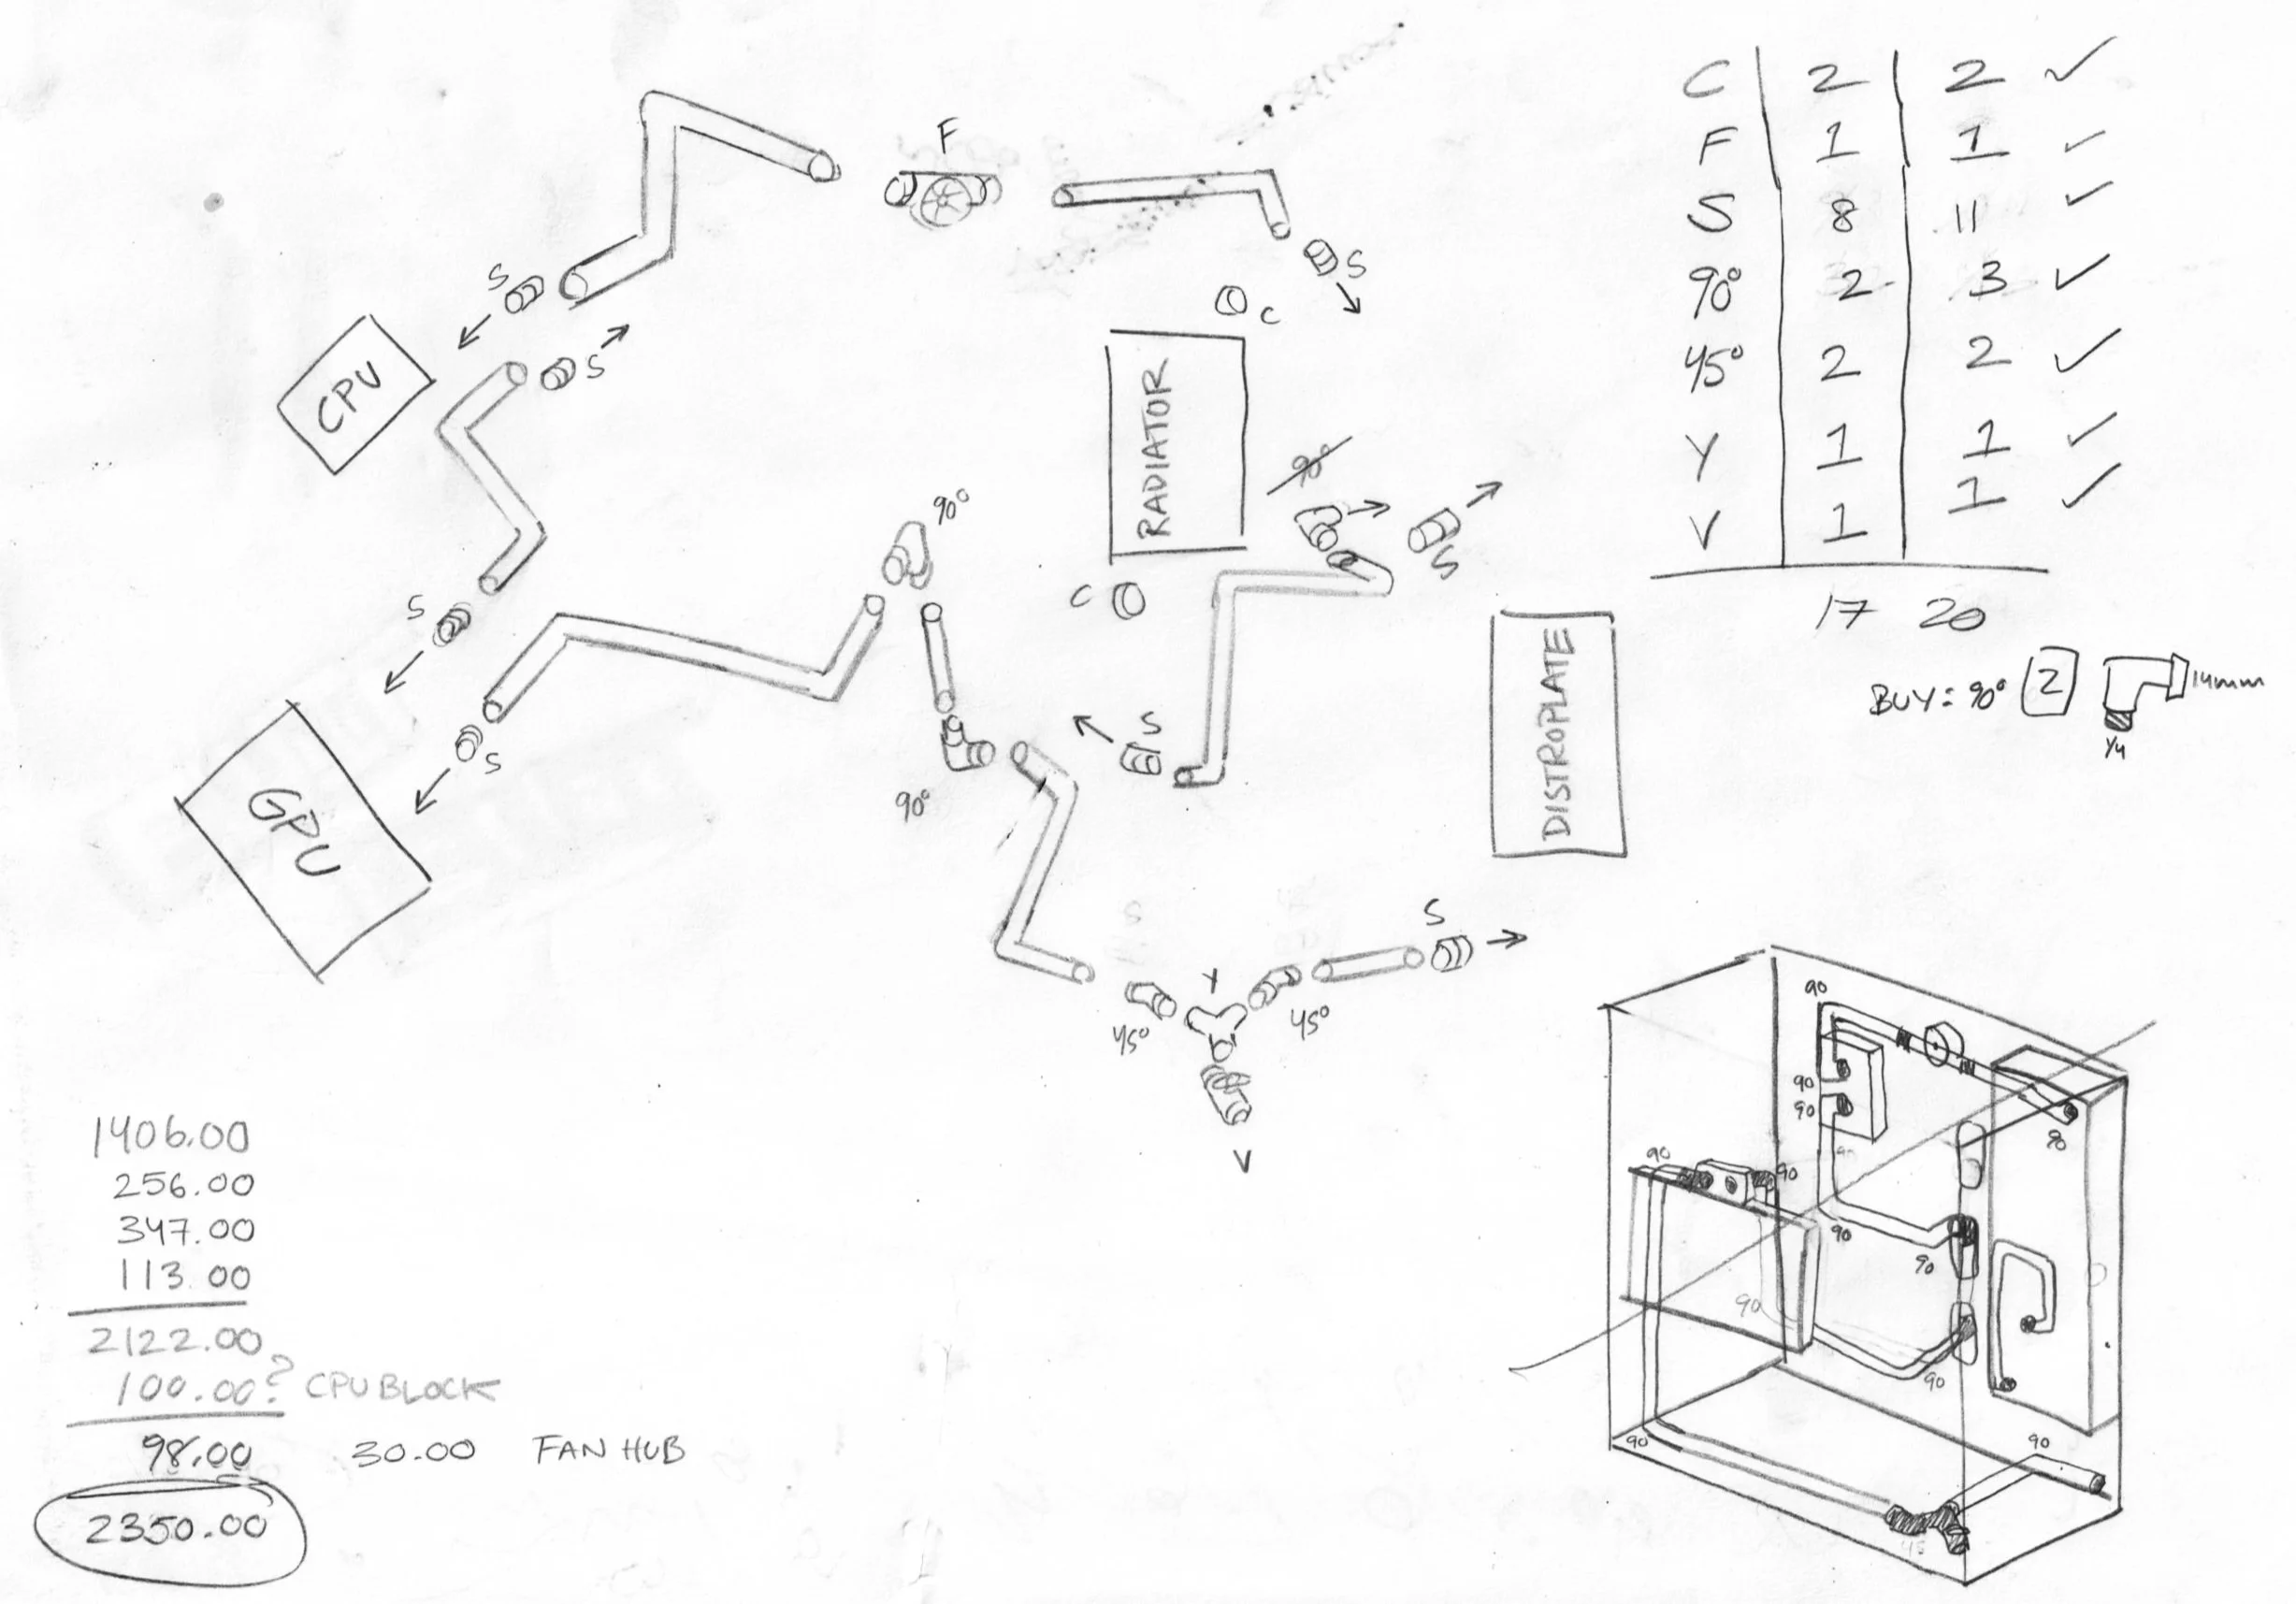 F
S
S
C
S
CPU
RADIATOR
90°
90°
S
C
S
S
S
90°
GPU
DISTROPLATE
S
Y
45°
45°
V
C 2 2 ✓
F 1 1 ✓
S 8 11 ✓
90° 2 3 ✓
45° 2 2 ✓
Y 1 1 ✓
V 1 1 ✓
17 20
BUY: 90° 2 14mm
1/4
1406.00
256.00
347.00
113.00
2122.00
100.00? CPU BLOCK
98.00 30.00 FAN HUB
2350.00
90
90
90
90
90
90
90
90
90
90
90
90
90
45